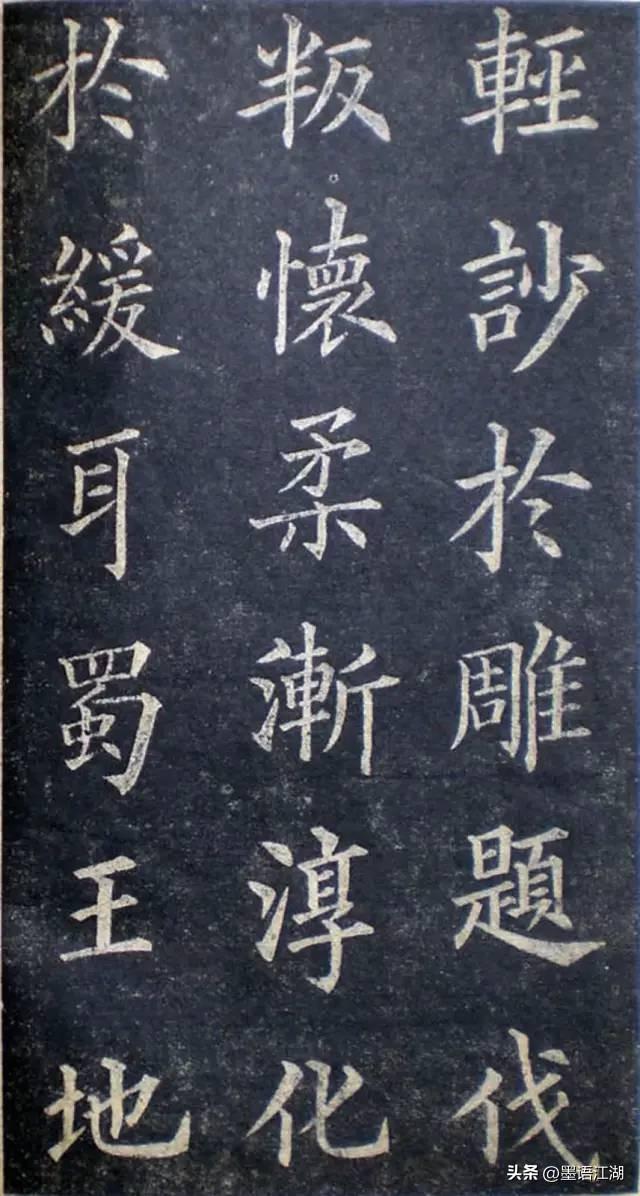 輕訬於雕題伐
叛懷柔漸淳化
於緩耳蜀王地
头条@墨语江湖